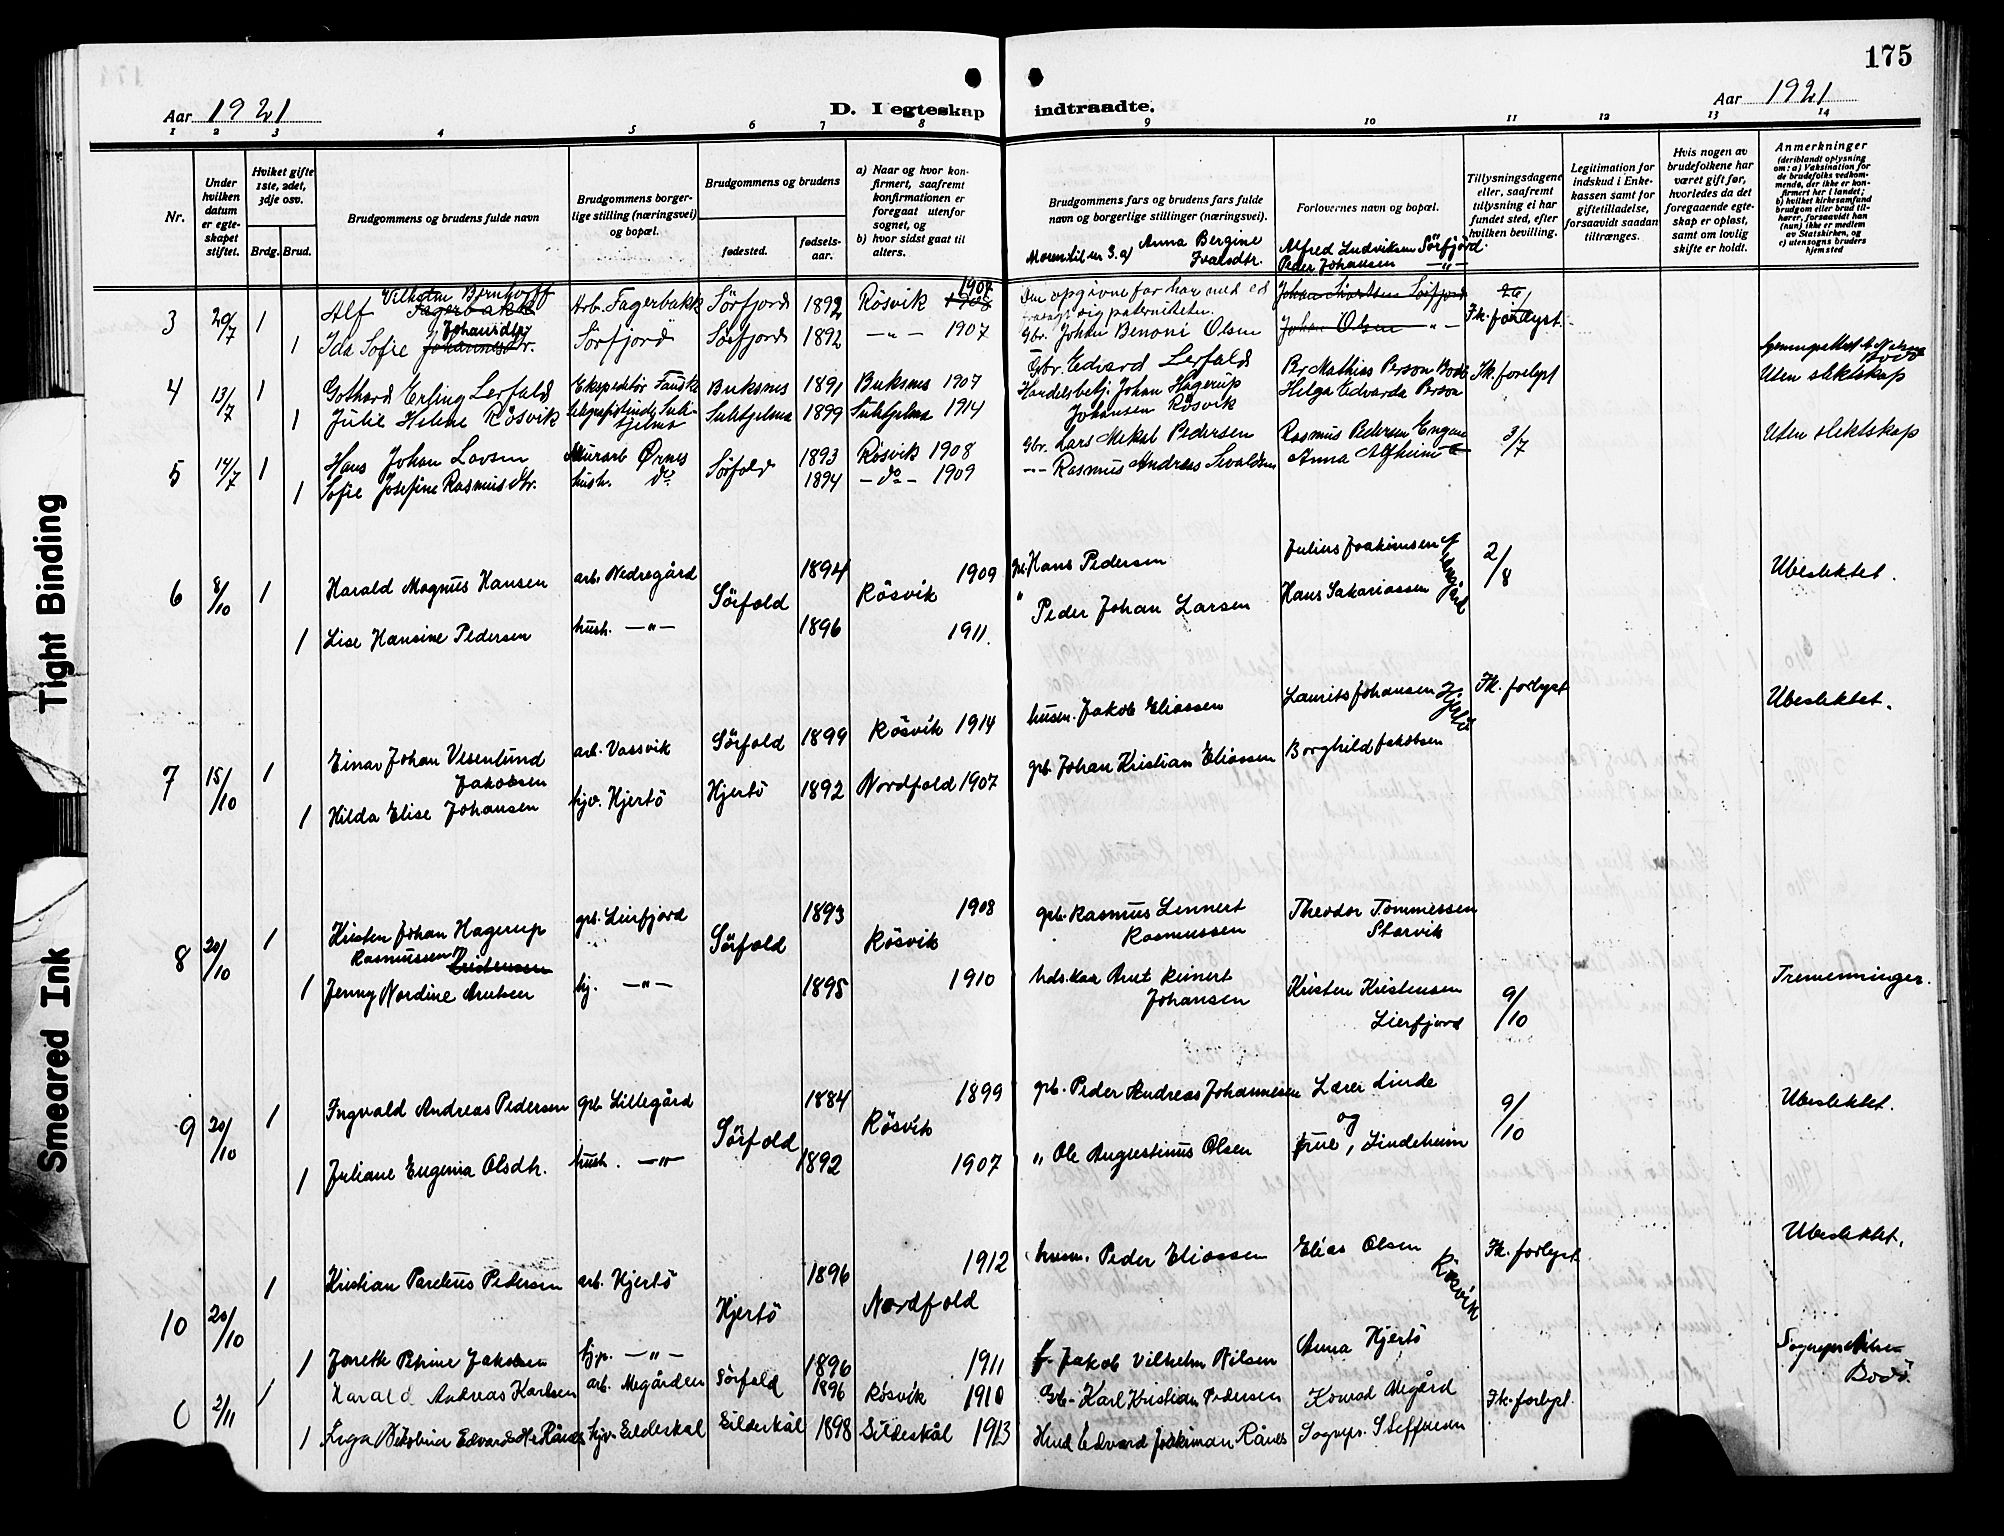 175
Aar 1921
D. I egteskap indtraadte.
Aar 1921
1 2 3 4 5 6 7 8 9 10 11 12 13 14
Nr.
Under hvilken datum er egteskapet stiftet.
Hvilket gifte 1ste, 2det, 3dje osv.
Brdg. Brud.
Brudgommens og brudens fulde navn
Brudgommens borgerlige stilling (næringsvei) og bopæl.
Brudgommens og brudens
fødested.
fødselsaar.
a) Naar og hvor konfirmert, saafremt konfirmationen er foregaat utenfor sognet, og
b) hvor sidst gaat til alters.
Brudgommens fars og brudens fars fulde navn og borgerlige stillinger (næringsvei).
Forlovernes navn og bopæl.
Tillysningsdagene eller, saafremt tillysning ei har fundet sted, efter hvilken bevilling.
Legitimation for indskud i Enkekassen samt for giftetilladelse, forsaavidt saadan tiltrænges.
Hvis nogen av brudefolkene har været gift før, hvorledes da det foregaaende egteskap er opløst, samt om lovlig skifte er holdt.
Anmerkninger
(deriblandt oplysning om: a) Vaksination for de brudefolks vedkommende, der ikke er konfirmert her i landet; b) hvilket kirkesamfund brudgom eller brud tilhører, forsaavidt han (hun) ikke er medlem av Statskirken, og c) utensogns bruders hjemsted
Moren til nr 3. a) Anna Bergine Ivarsdtr.
Alfred Ludviksen Sörfjord.
Peder Johansen —"—
3 20/7 1 Alf Vilhelm Bernhoff Fagerbakk Arb. Fagerbakk Sörfjord 1892 Rösvik 1907 1908 Den opgivne far har ned ed fralagt sig paterniteten. Fk. forlyst.
1 Ida Sofie Johannesdtr. Johansdtr Sörfjord Sörfjord 1892 —"— 1907 Gbr. Johan Benoni Olsen Johan Olsen —"—
4 13/7 1 Gothard Erling Lerfald Ekspeditör Fauske Buksnes 1891 Buksnes 1907 Gbr. Edvard Lerfald Per Mathias Person Bodö Fk. forlyst Uten slektskap
1 Julie Helene Rösvik Sulitjelma 1899 Sulitjelma 1914 Handelsbetj. Johan Hagerup Johansen Rösvik Helga Edvarda Person
5 14/7 1 Hans Johan Larsen Murarb Ørnes Sörfold 1893 Rösvik 1908 Gbr. Lars Mikal Pedersen Rasmus Pedersen Engan 3/7 Uten slektskap
1 Sofie Josefine Rasmusdtr. hush. do 1894 —do— 1909 —"— Rasmus Andreas Sivaldsen Anna Alfheim
6 8/10 1 Harald Magnus Hansen arb. Nedregård Sörfold 1894 Rösvik 1909 gbr. Hans Pedersen Julius Joakimsen 2/8 Ubeslektet.
1 Lise Hansine Pedersen hush. —"— 1896 1911. " Peder Johan Larsen Hans Sakariassen
7 15/10 1 Einar Johan Vesenlund Jakobsen arb. Vassvik Sörfold 1899 Rösvik 1914 husm. Jakob Eliassen Laurits Johansen Hjertö Fk. forlyst Ubeslektet.
1 Hilda Elise Johansen hjv. Hjertö Hjertö 1892 Nordfold 1907 grb. Johan Kristian Eliassen Borghild Jakobsen
8 20/10 1 Kristen Johan Hagerup Rasmussen Kristensen grb. Lierfjord Sörfold 1893 Rösvik 1908 grb. Rasmus Lennert Rasmussen Theodor Tommessen Storvik
1 Jenny Nordine Arntsen hj. —"— 1895 1910 hds.kar Arnt Reinert Johansen Kristen Kristensen Lierfjord 9/10 Tremenninger.
9 20/10 1 Ingvald Andreas Pedersen grb. Lillegård Sörfold 1884 Rösvik 1899 grb. Peder Andreas Johannesen Lærer Linde 9/10 Ubeslektet.
1 Juliane Eugenia Olsdtr. hush. —"— 1892 1907 " Ole Augustinus Olsen og frue, Lindeheim
10 20/10 1 Kristian Parelius Pedersen arb. Hjertö Hjertö 1896 Nordfold 1912 husm. Peder Eliassen Elias Olsen Rösvik Fk. forlyst Ubeslektet.
1 Jorette Petrine Jakobsen hjp. —"— 1896 1911 f. Jakob Vilhelm Nilsen Anna Hjertö
2/11 1 Harald Andreas Karlsen arb. Megården Sörfold 1896 Rösvik 1910 Gb. Karl Kristian Pedersen Konrad Megård Fk. forlyst. Bodö.
1 Edvards Rånes hjv. Gildeskal Gildeskål 1898 Gildeskål 1913 Hmd Edvard Joakiman Rånes Sognepr. Steffensen
Tight Binding
Smeared Ink